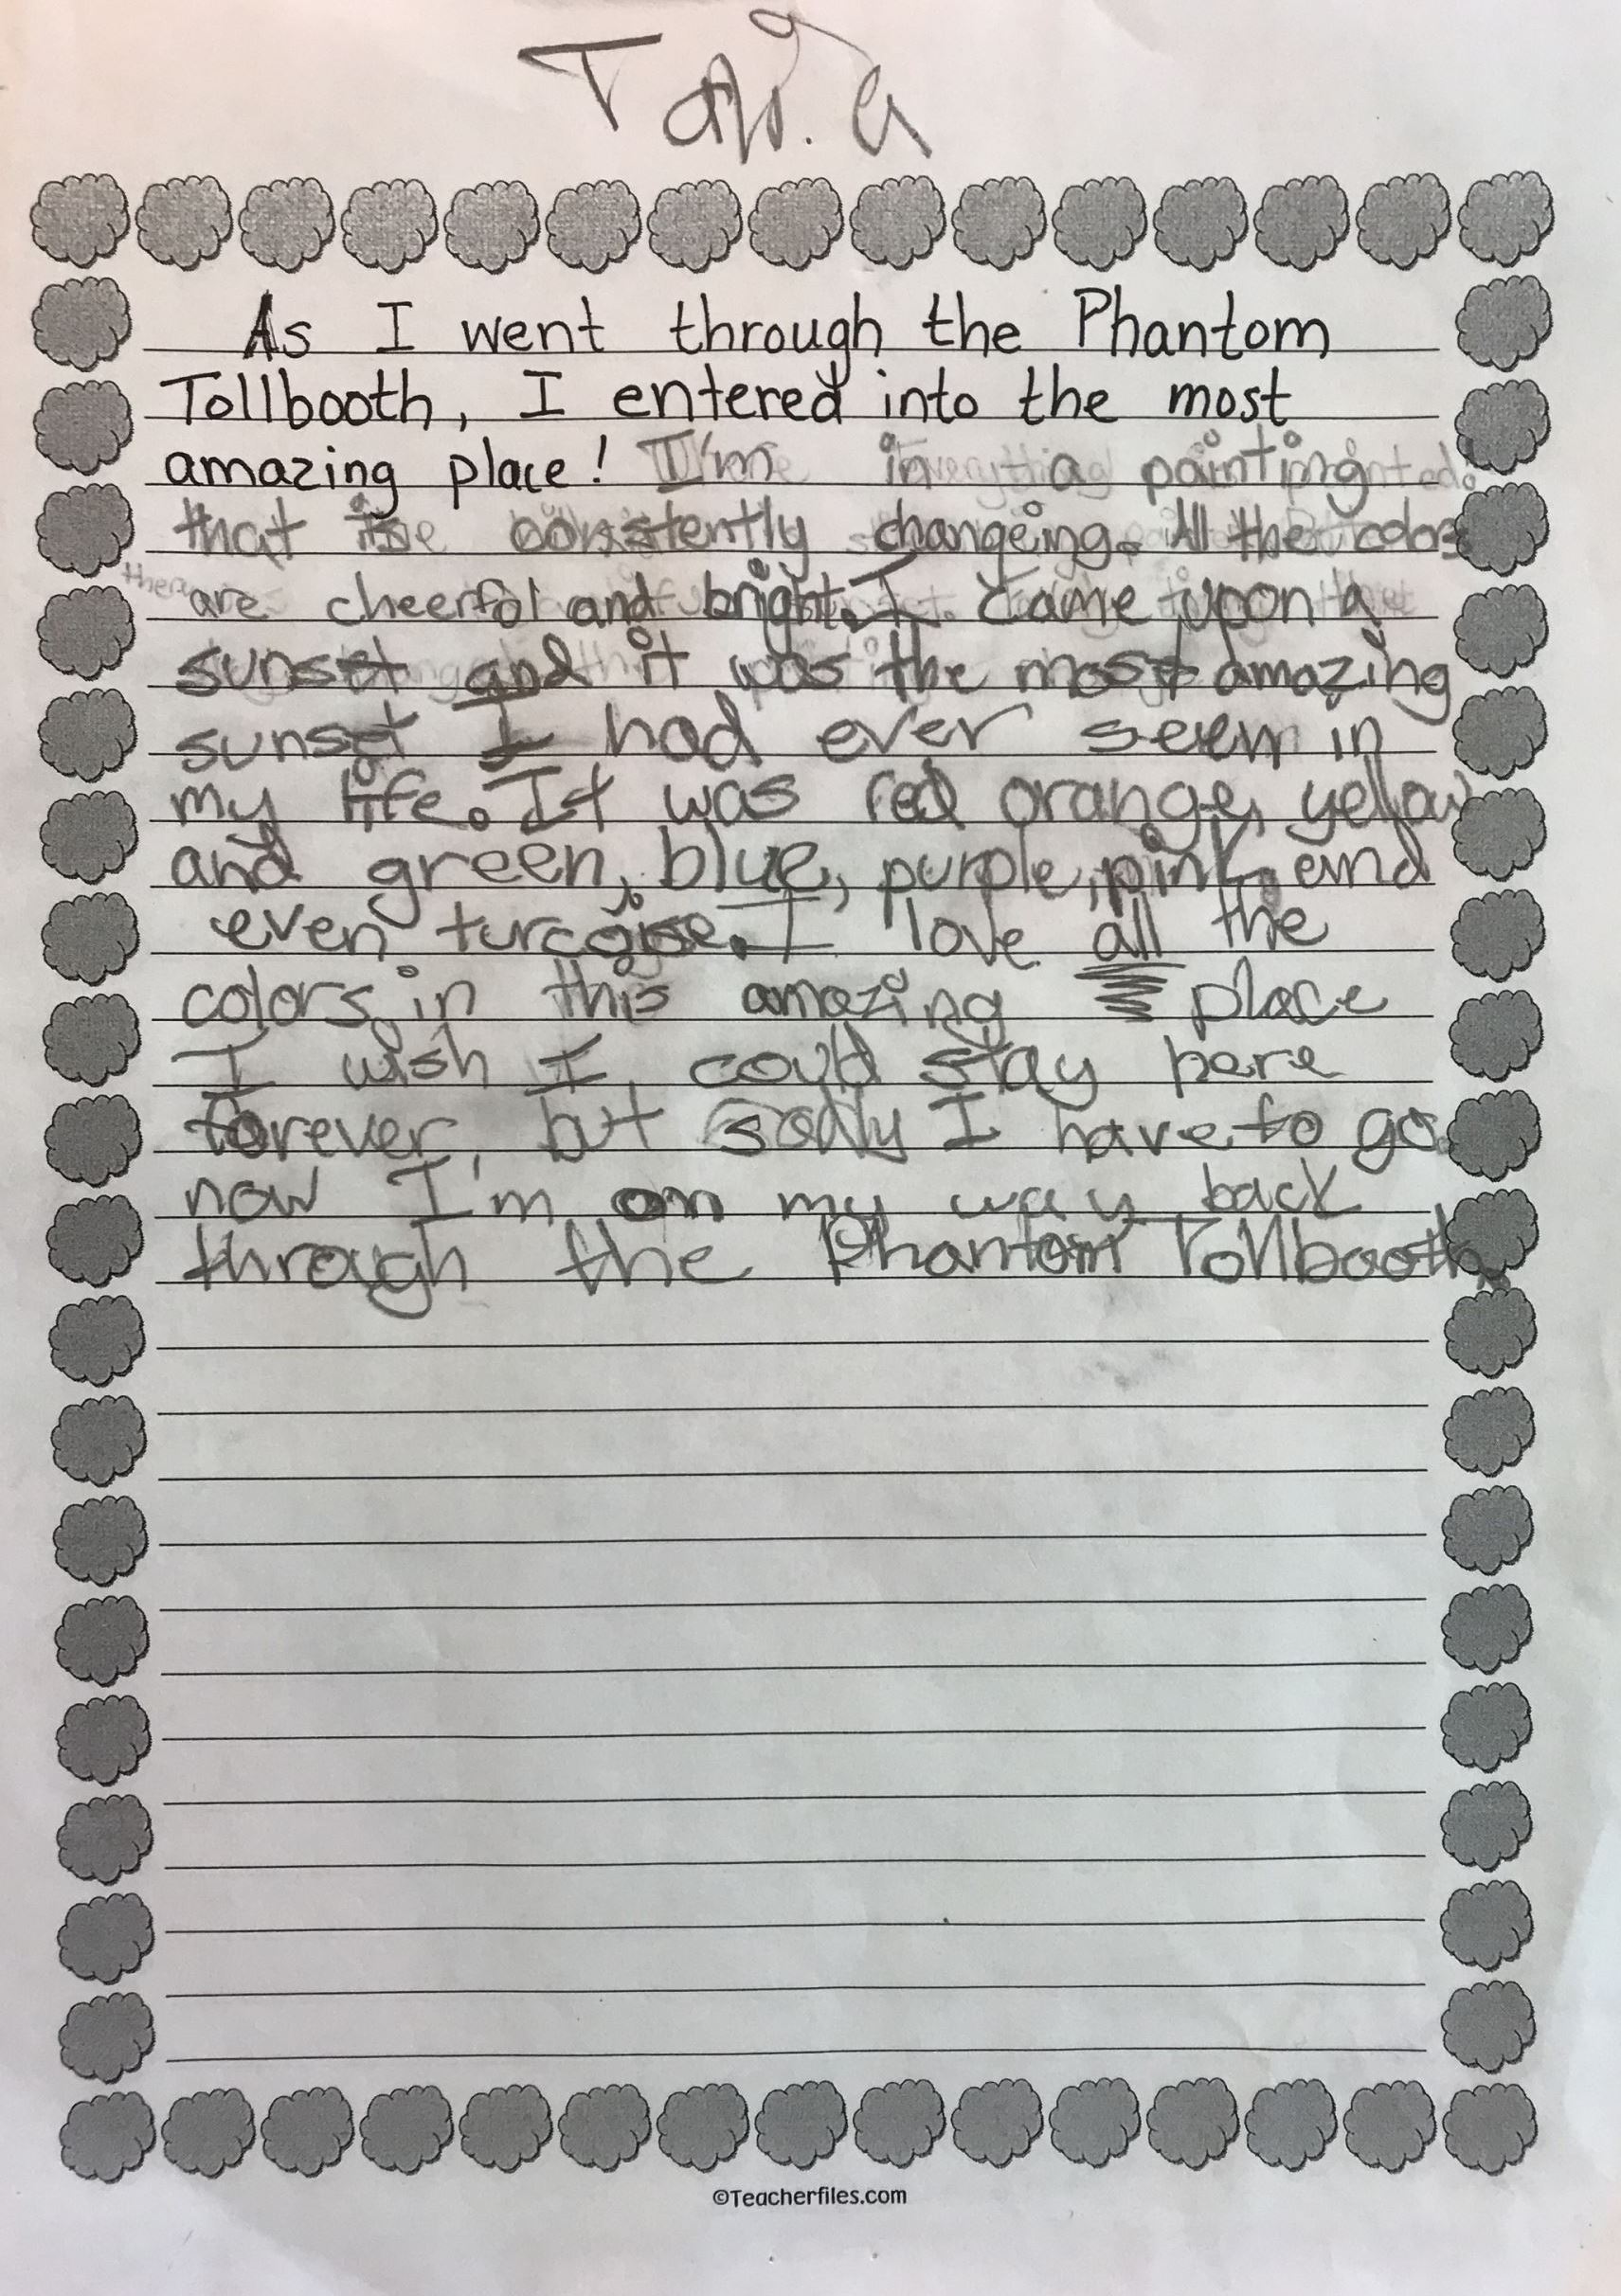 As I went through the Phantom
Tollbooth, I entered into the most
amazing place! I'm in a painting
that is consistently changeing. All the colors
are cheerfol and bright. I came upon a
sunset and it was the most amazing
sunset I had ever seen in
my life. It was red orange, yellow
and green, blue, purple, pink, and
even turcoise. I love all the
colors in this amazing place
I wish I could stay here
forever, but sadly I have to go.
now I'm on my way back
through the Phantom Tollbooth.
©Teacherfiles.com